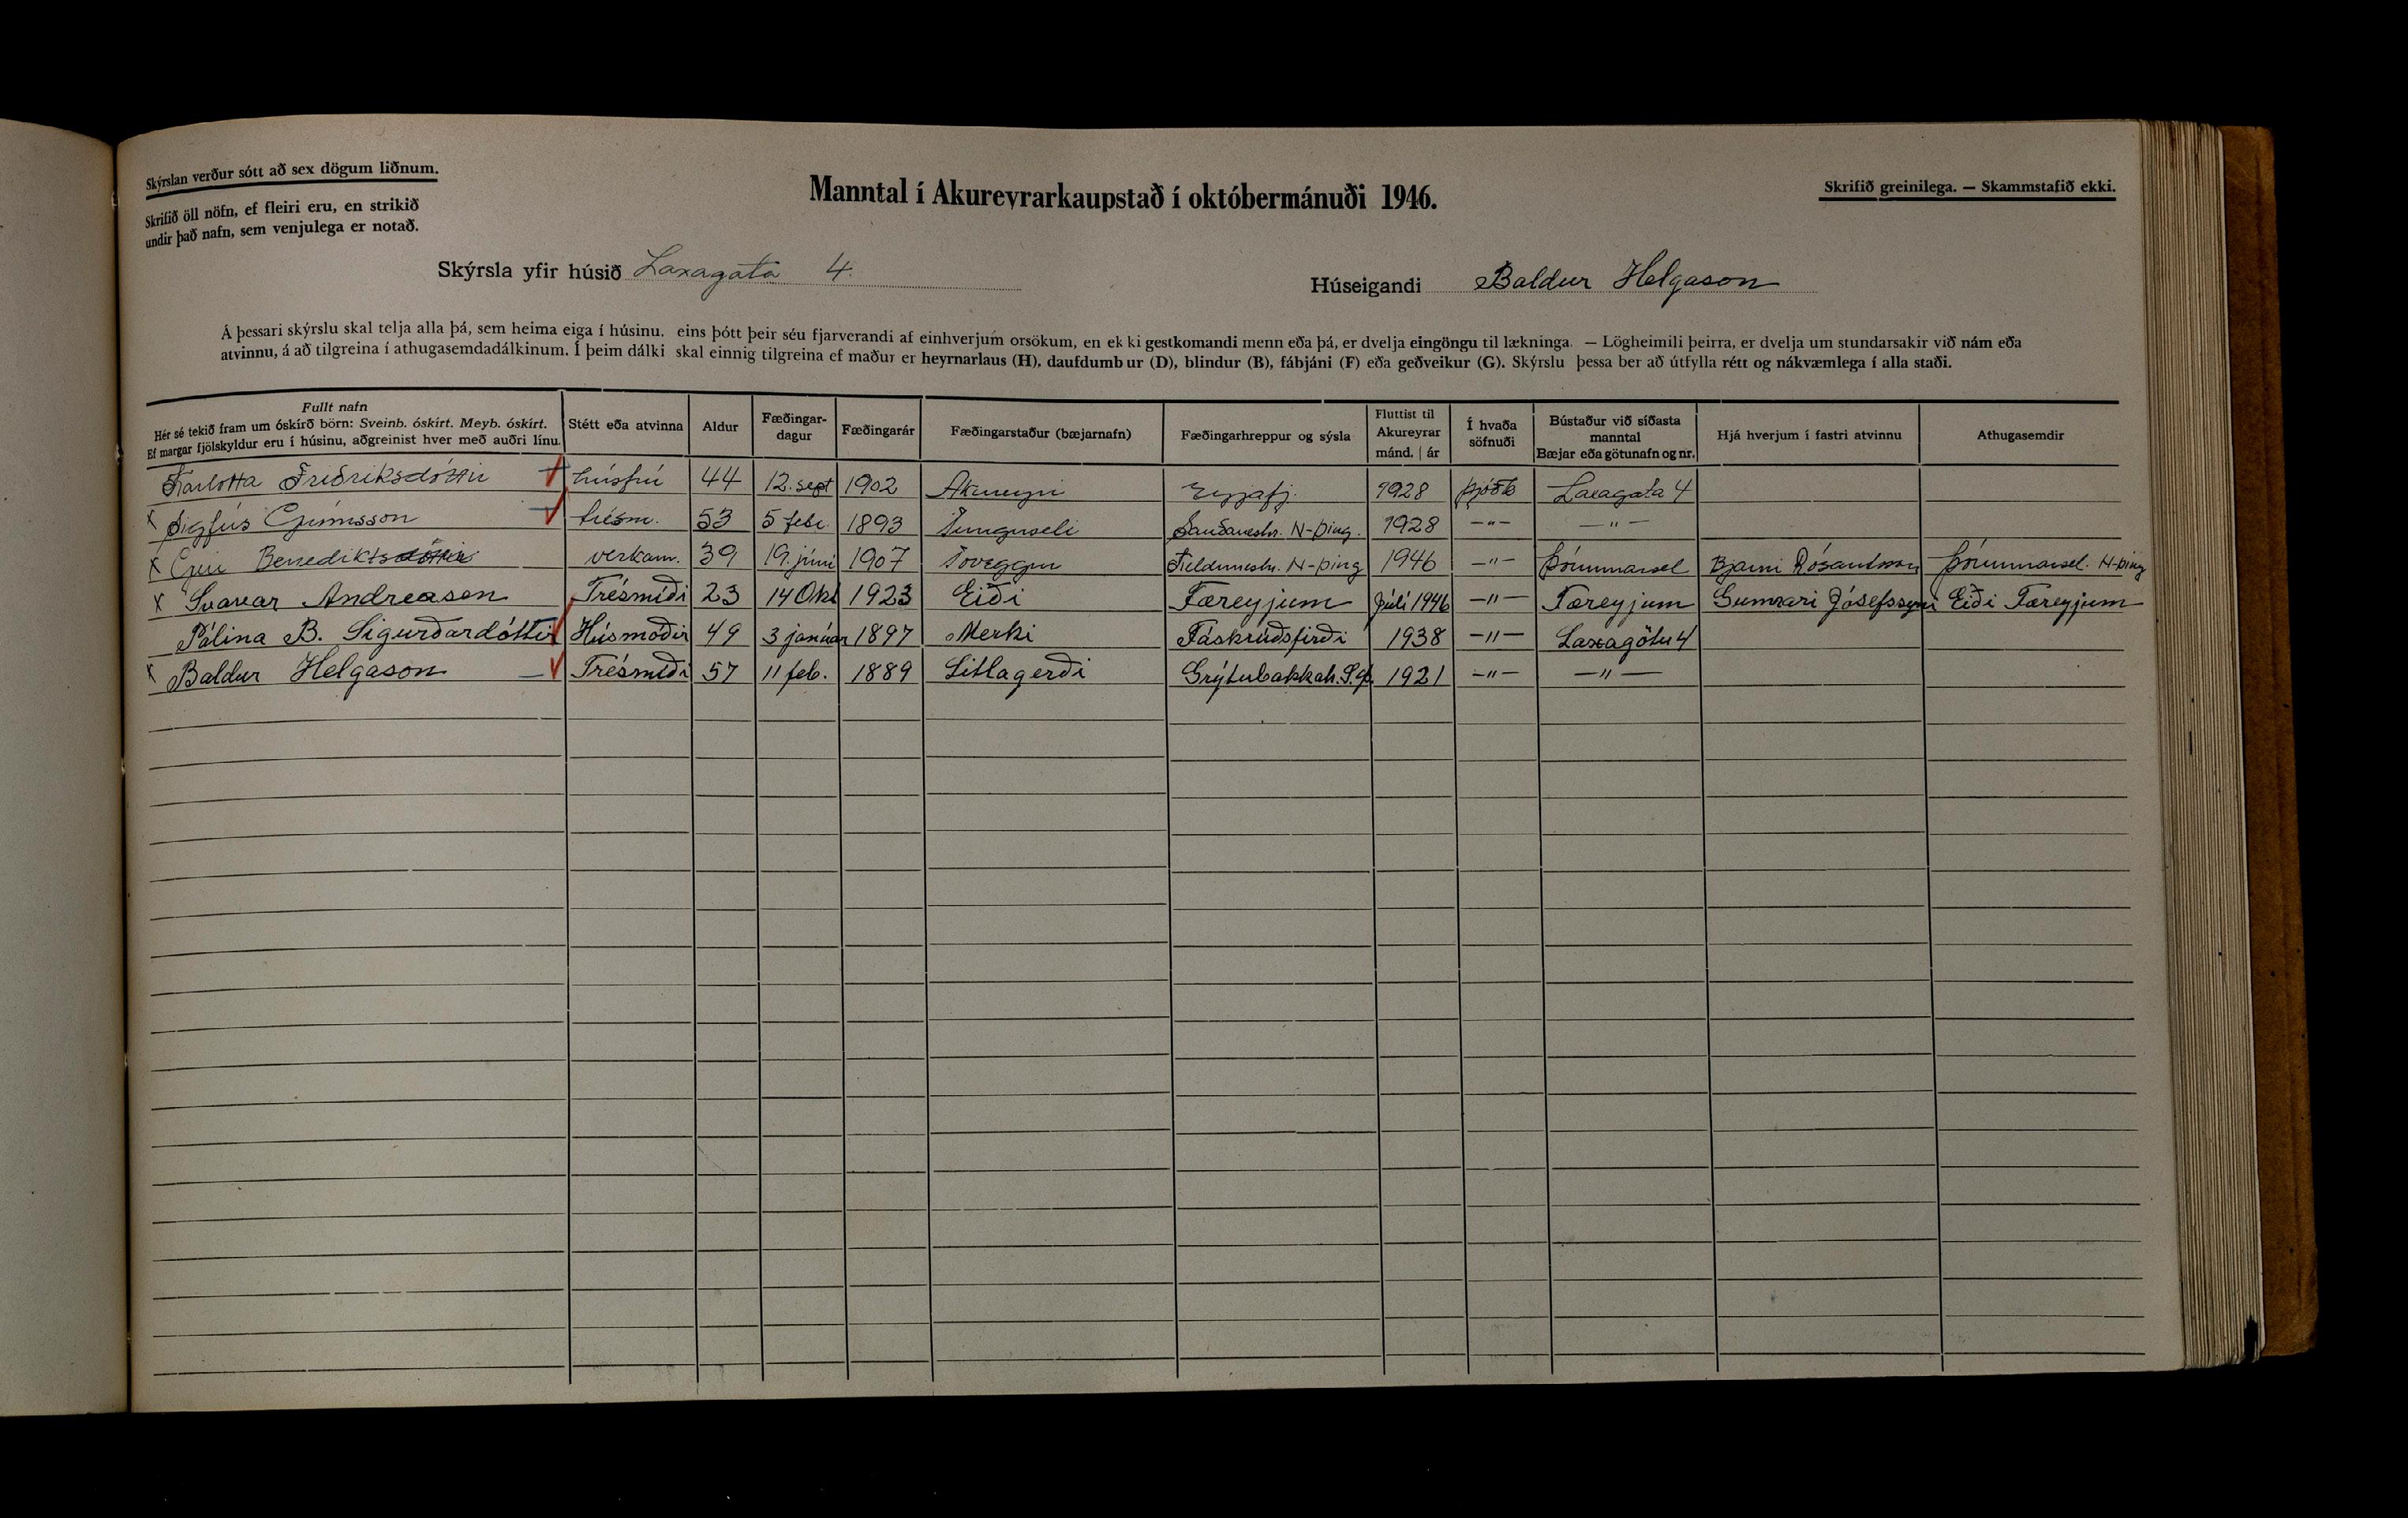 Skýrslan verður sótt að sex dögum liðnum.
Skrifið öll nöfn, ef fleiri eru, en strikið
undir það nafn, sem venjulega er notað.
Manntal í Akureyrarkaupstað í októbermánuði 1946.
Skrifið greinilega. — Skammstafið ekki.
Skýrsla yfir húsið Laxagata 4.
Húseigandi Baldur Helgason
Á þessari skýrslu skal telja alla þá, sem heima eiga í húsinu, eins þótt þeir séu fjarverandi af einhverjum orsökum, en ekki gestkomandi menn eða þá, er dvelja eingöngu til lækninga. — Lögheimili þeirra, er dvelja um stundarsakir við nám eða
atvinnu, á að tilgreina í athugasemdadálkinum. Í þeim dálki skal einnig tilgreina ef maður er heyrnarlaus (H), daufdumbur (D), blindur (B), fábjáni (F) eða geðveikur (G). Skýrslu þessa ber að útfylla rétt og nákvæmlega í alla staði.
Fullt nafn
Hér sé tekið fram um óskírð börn: Sveinb. óskírt. Meyb. óskírt.
Ef margar fjölskyldur eru í húsinu, aðgreinist hver með auðri línu.
Stétt eða atvinna
Aldur
Fæðingar-
dagur
Fæðingarár
Fæðingarstaður (bæjarnafn)
Fæðingarhreppur og sýsla
Fluttist til
Akureyrar
mánd. | ár
Í hvaða
söfnuði
Bústaður við síðasta
manntal
Bæjar eða götunafn og nr.
Hjá hverjum í fastri atvinnu
Athugasemdir
Karlotta Friðriksdóttir húsfrú 44 12. sept 1902 Akureyri Eyjafj. 1928 Þjóðk Laxagata 4
x Sigfús Grímsson trésm. 53 5 febr. 1893 Tunguseli Sauðaneshr. N-Þing. 1928 —"— —"—
x Benediktsdóttir verkam. 39 19. júní 1907 1946 —"— N-Þing
x Svavar Andreasen Trésmíði 23 14 Okt 1923 Eiði Færeyjum Júlí 1946 —"— Færeyjum Gunnari Jósefssyni Eiði Færeyjum
Pálína B. Sigurðardóttir Húsmóðir 49 3 janúar 1897 Merki Fáskrúðsfirði 1938 —"— Laxagötu 4
x Baldur Helgason Trésmíði 57 11 feb. 1889 Litlagerði Grýtubakkah. S.þ. 1921 —"— —"—